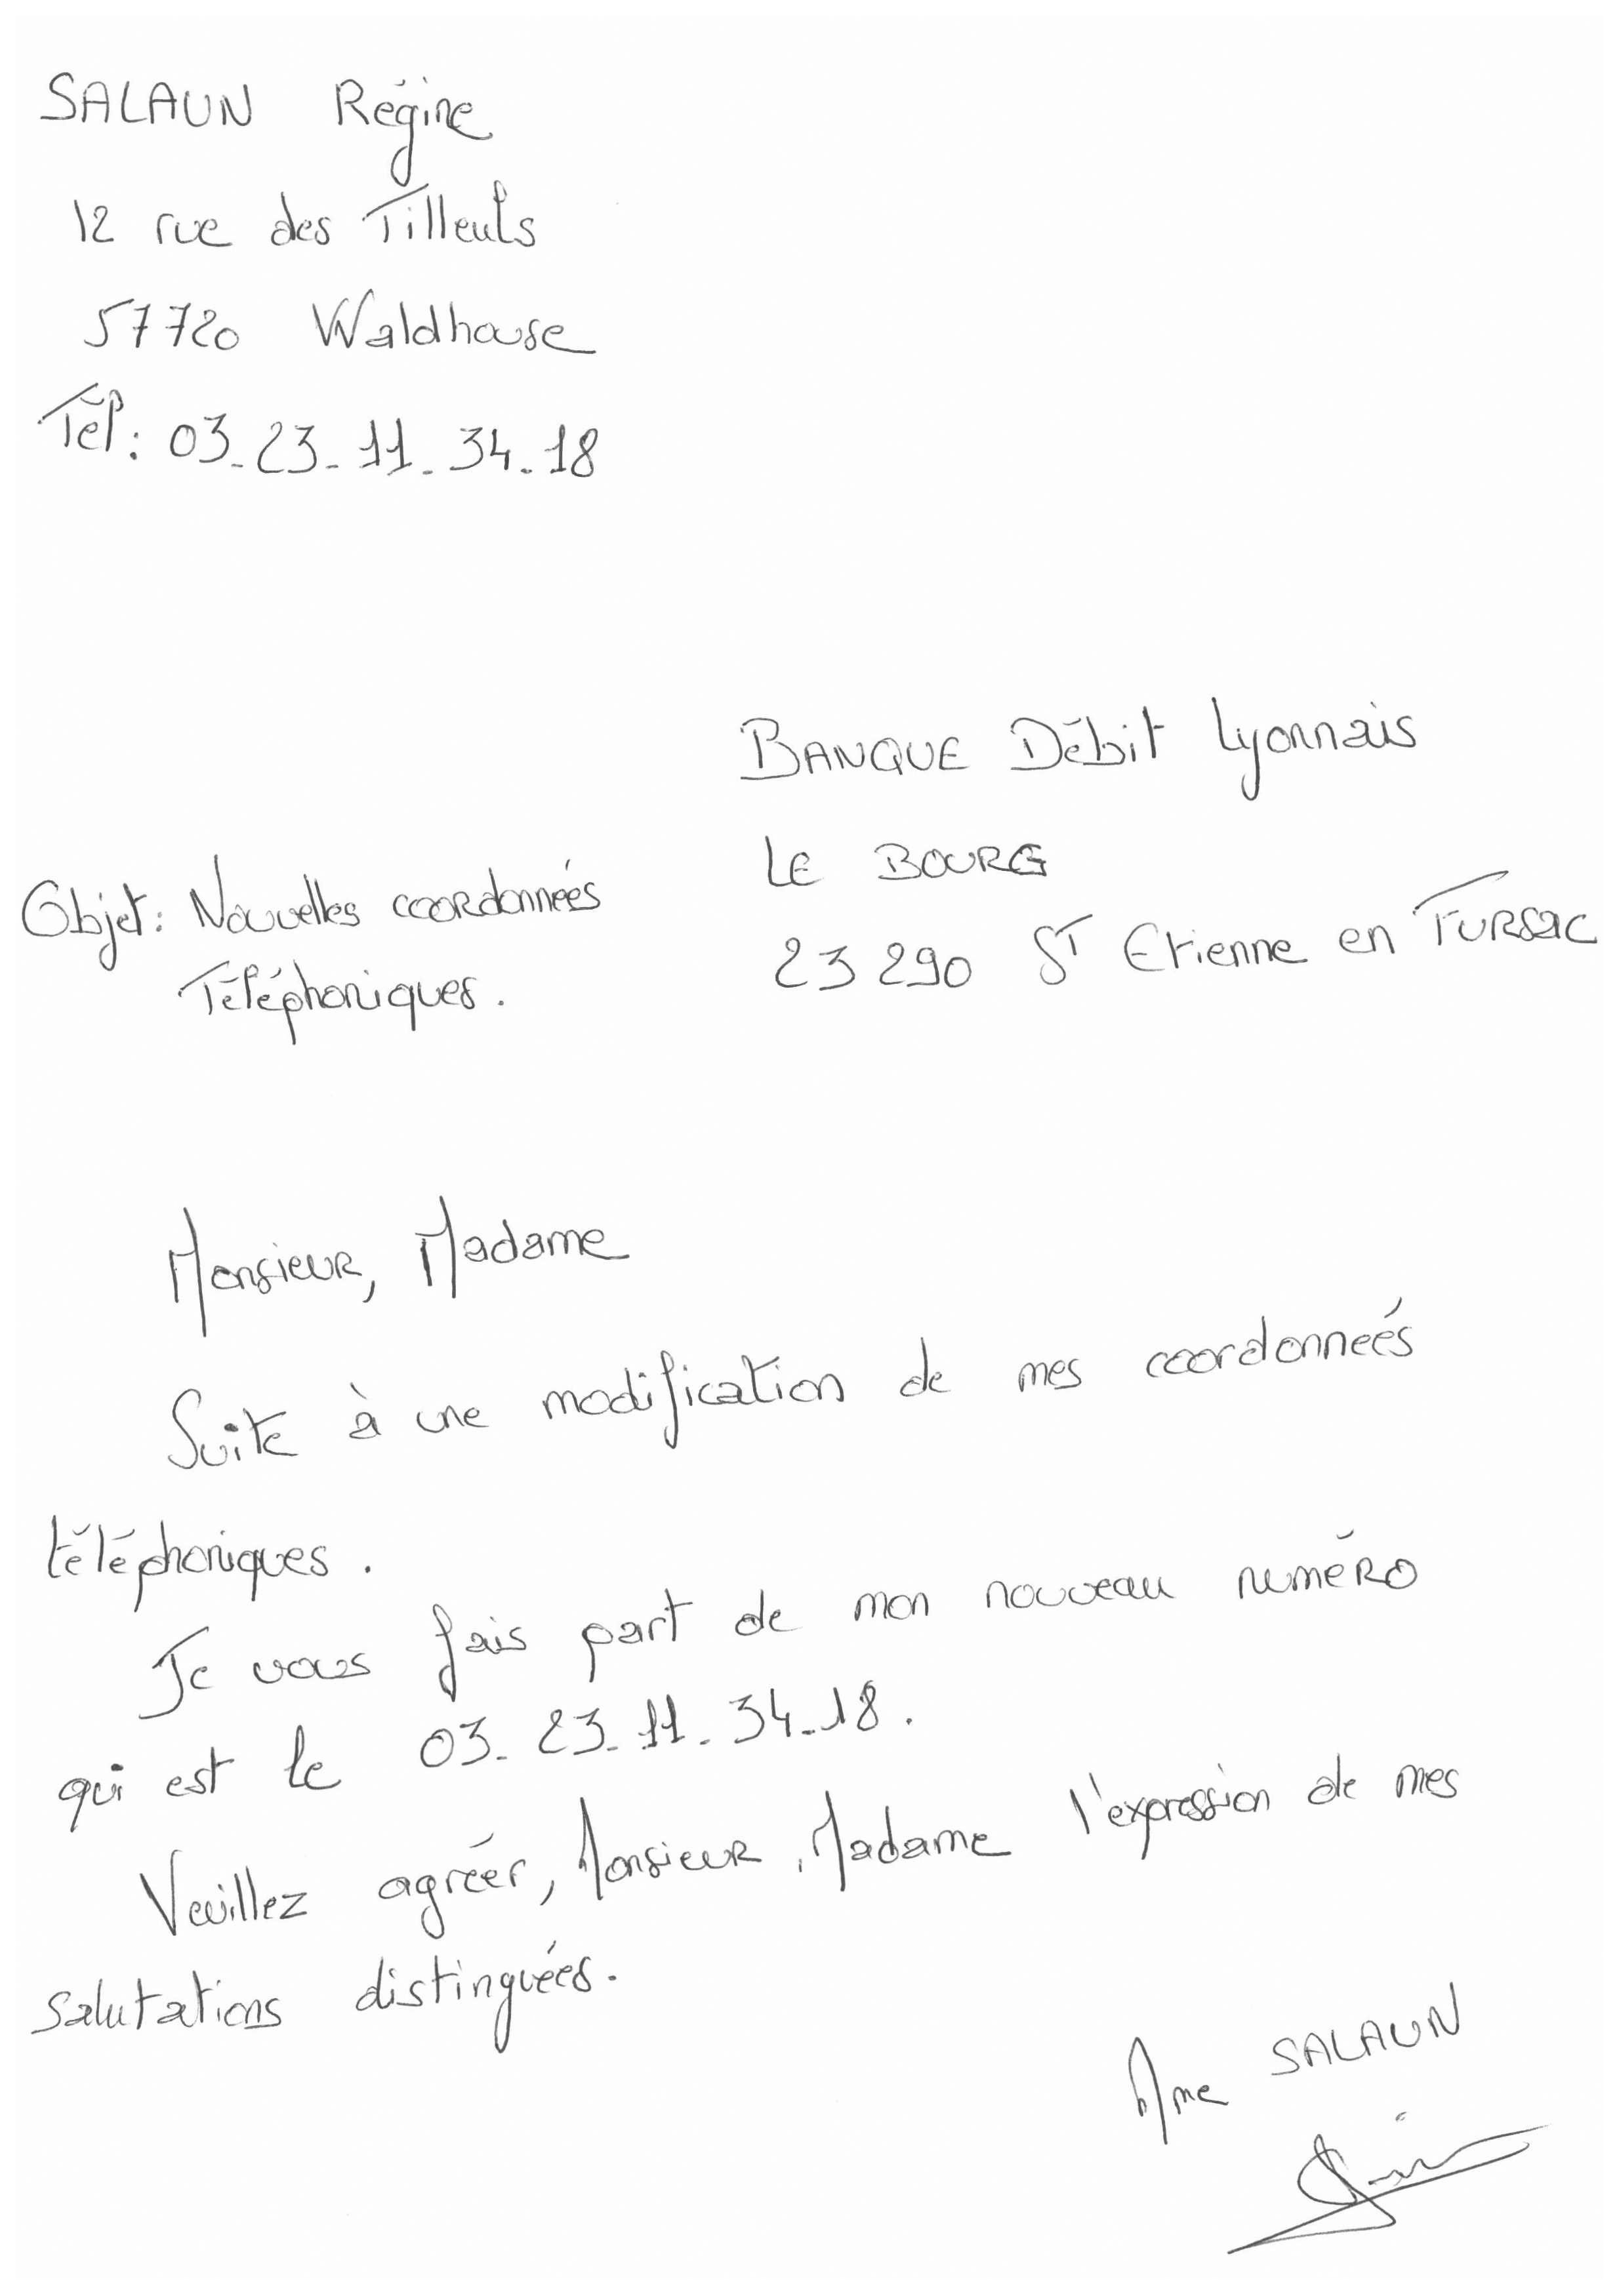 SALAUN Régine
12 rue des Tilleuls
57720 Waldhouse
Tél: 03_23_11_34_18
BANQUE Débit Lyonnais
LE BOURG
23290 ST Etienne en FURSAC
Objet: Nouvelles coordonnées
Téléphoniques.
Monsieur, Madame
Suite à une modification de mes coordonneés
téléphoniques.
Je vous fais part de mon nouveau numéro
qui est le 03_23_11_34_18.
Veuillez agréer, Monsieur, Madame l'expression de mes
salutations distinguées.
Mme SALAUN